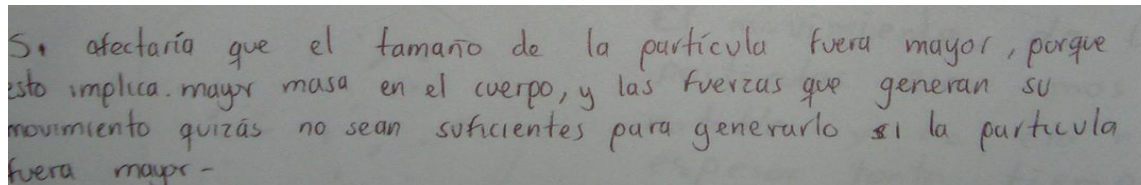 Si afectaría que el tamaño de la partícula fuera mayor, porque
esto implica. mayor masa en el cuerpo, y las fuerzas que generan su
movimiento quizás no sean suficientes para generarlo si la partícula
fuera mayor-